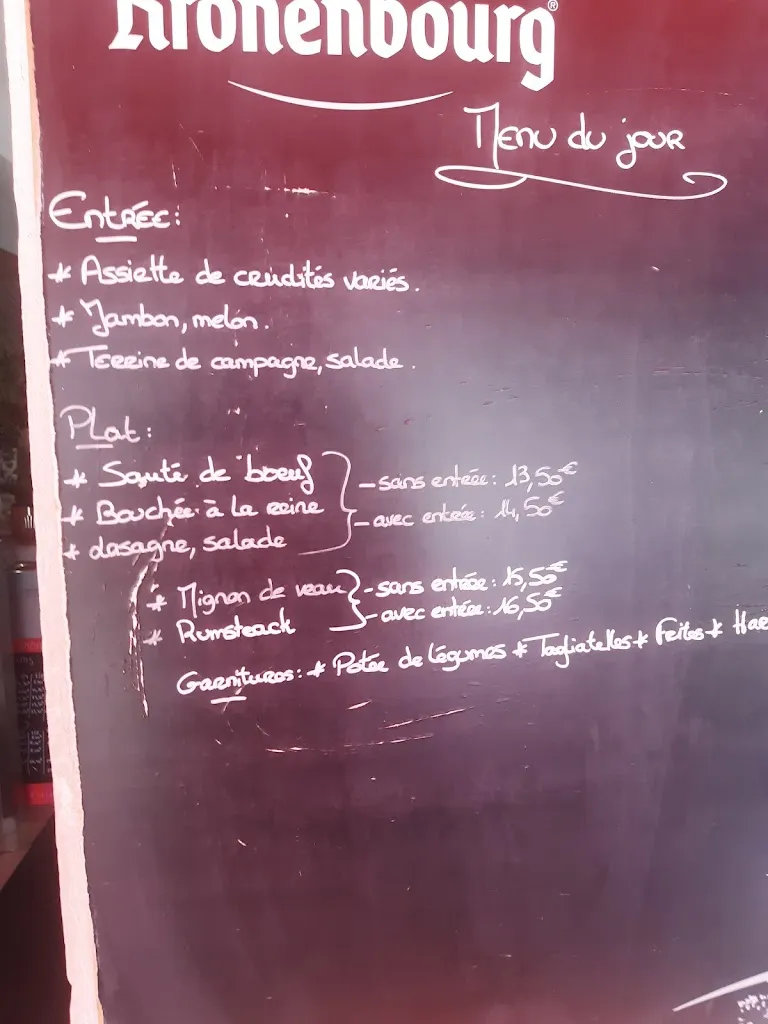 Kronenbourg®
Menu du jour
Entrée:
* Assiette de crudités variés.
* Jambon, melon.
* Terrine de campagne, salade.
Plat:
* Sauté de boeuf
* Bouchée à la reine
* Lasagne, salade
- sans entrée: 13,50€
- avec entrée: 14,50€
* Mignon de veau
* Rumsteack
- sans entrée: 15,50€
- avec entrée: 16,50€
Garnitures: * Potée de légumes * Tagliatelles * Frites * Har